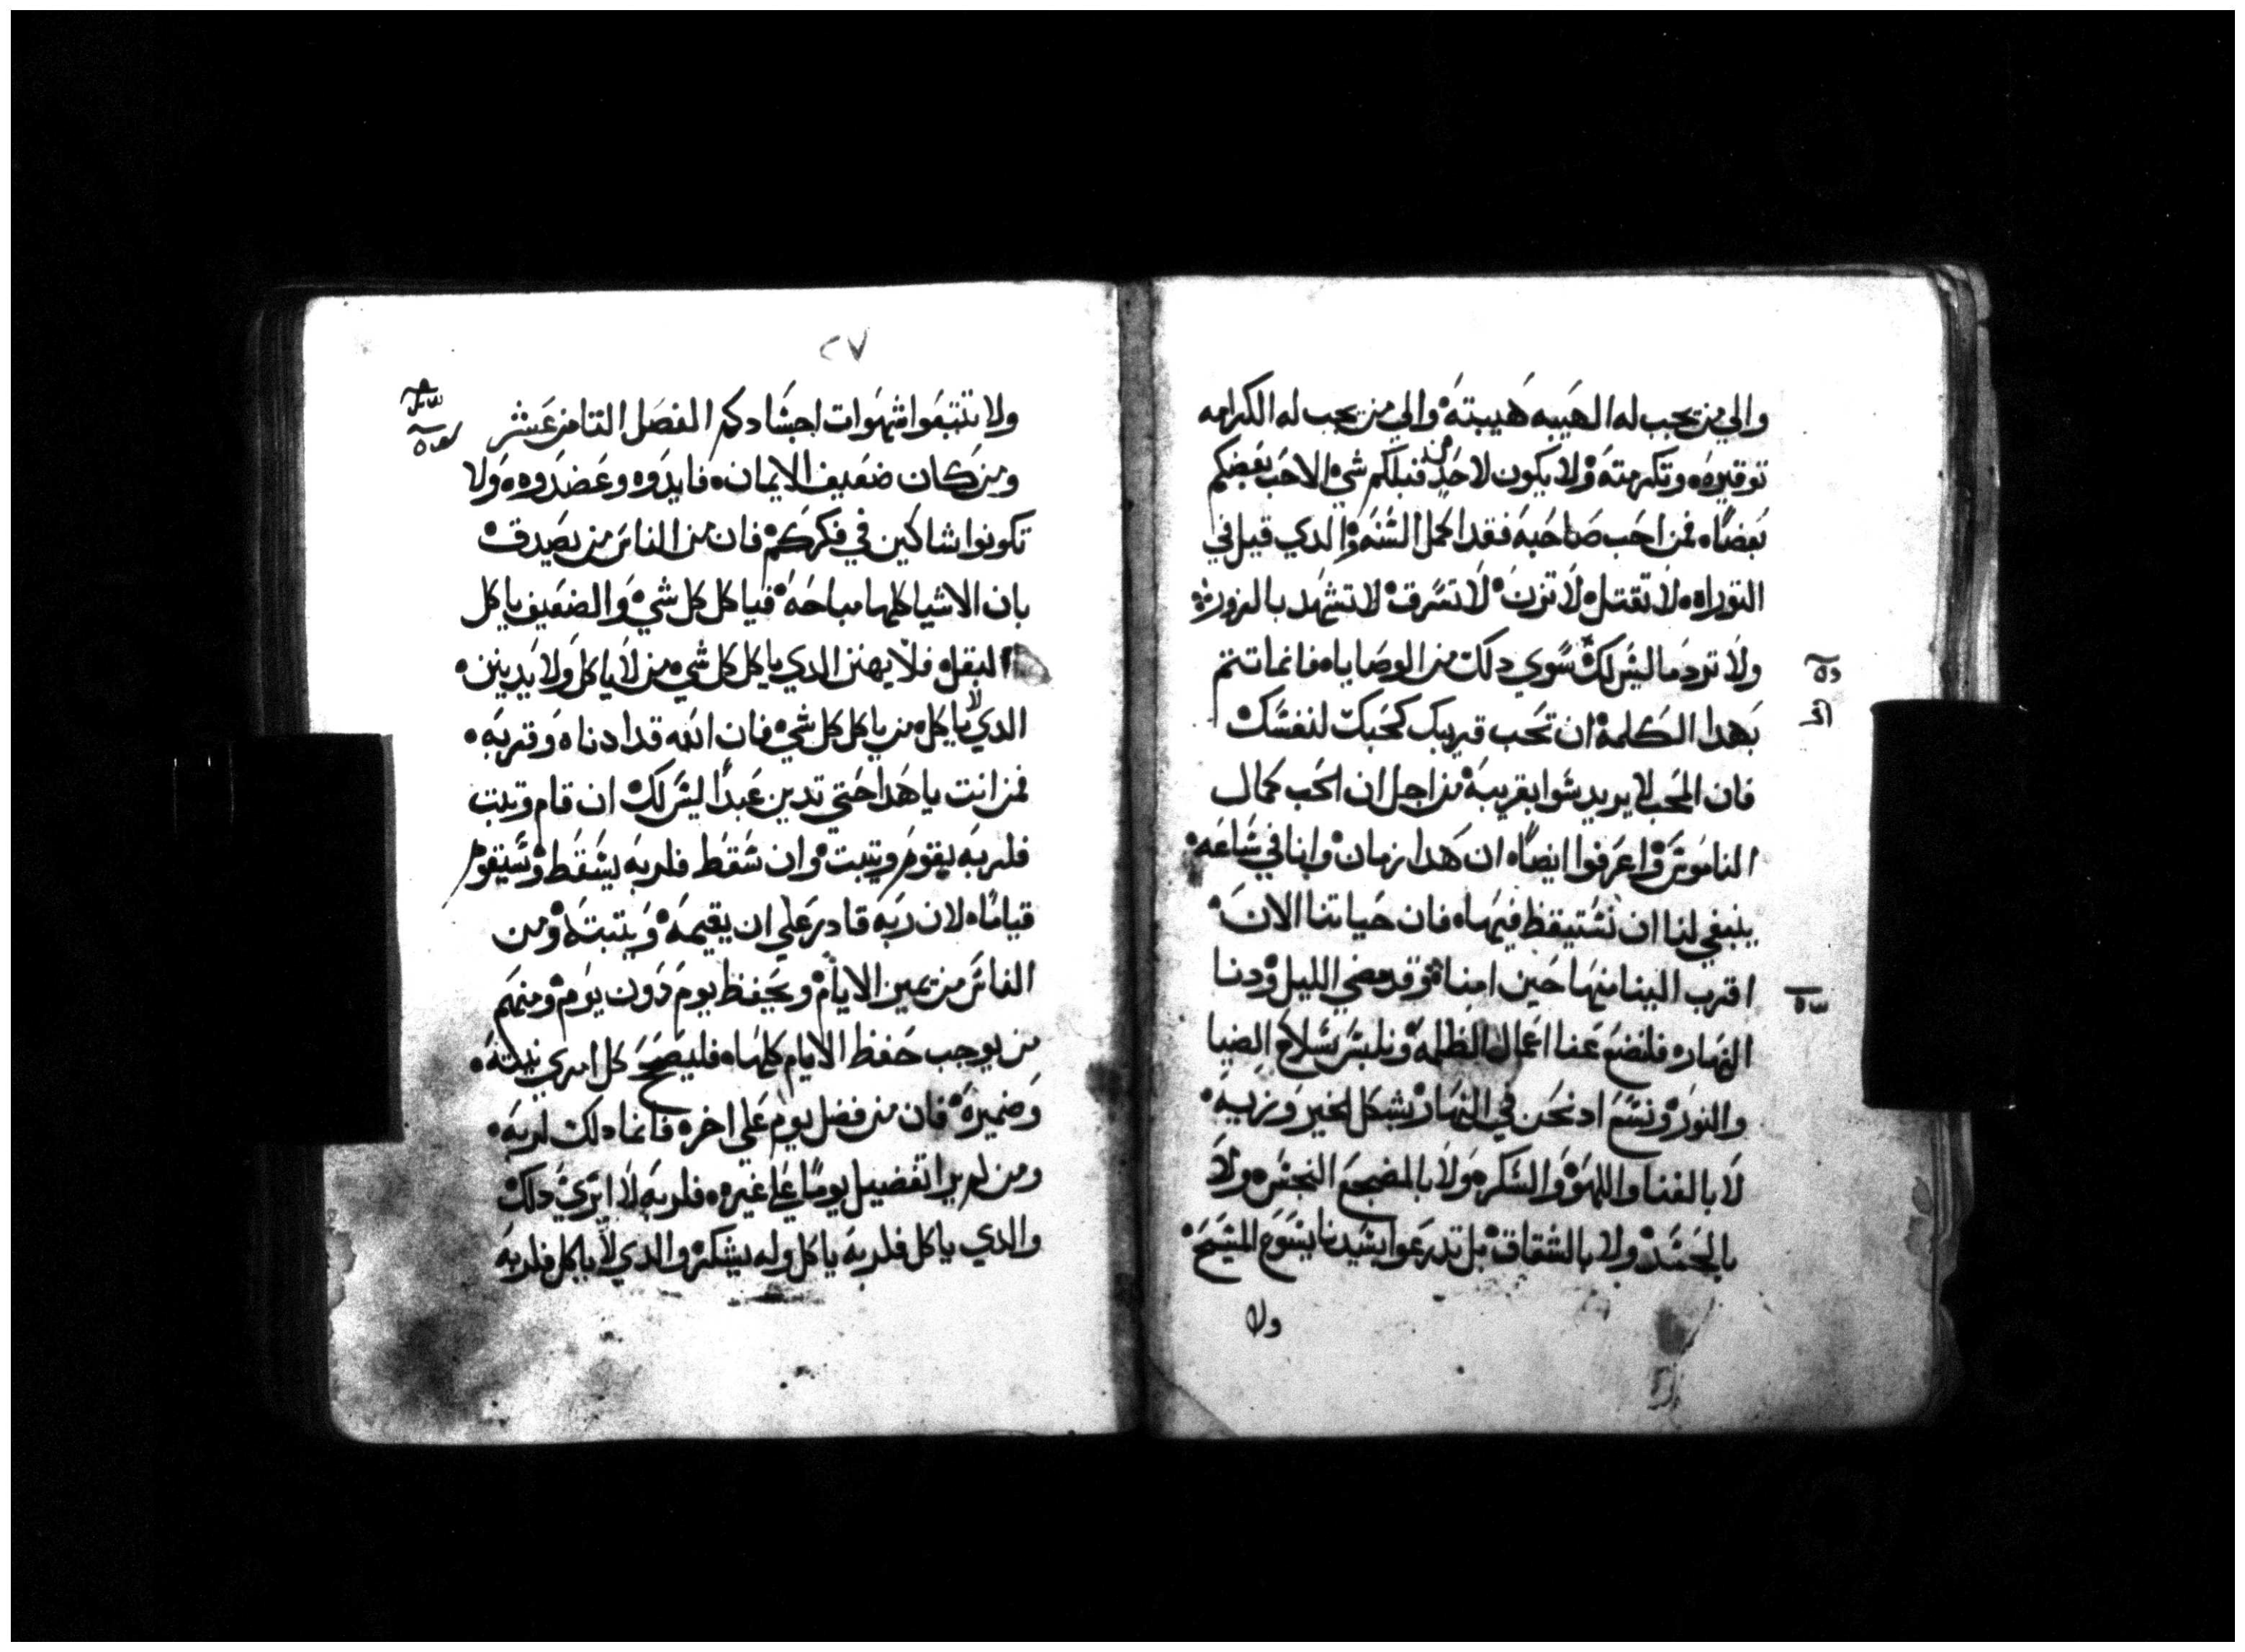 والي من يجب له الهيبه هيبته والي من يجب له الكرامه
توقيره وتكرمته ولا يكون لاحد من قبلكم شي الا حب بعضكم
بعضا فمن احب صاحبه فقد اكمل السنه والدي قيل في
التوراه لا تقتل لا تزن لا تسرق لا تشهد بالزور
ولا ترد ما ليس لك سوي دلك من الوصايا فانما تتم
بهدا الكلمة ان تحب قريبك كحبك لنفسك
فان المحب لا يريد سوا بقريبه من اجل ان الحب كمال
الناموس واعرفوا ايضا ان هدا زمان وانا في ساعه
ينبغي لنا ان نستيقظ فيها فان حياتنا الان
اقرب الينا منها حين امنا وقد مضي الليل ودنا
النهار فلنضع عنا اعمال الظلمه ونلبس سلاح الضيا
والنور ونسع اد نحن في النهار بشكل الخير وزيه
لا بالغنا واللهو والسكر ولا بالمضجع النجس ولا
بالحسد ولا بالشقاق بل تدرعوا بسيدنا يسوع المسيح
ولا
٢٧
ولا تتبعوا شهوات اجسادكم الفصل الثامن عشر
ومن كان ضعيف الايمان فايدوه وعضدوه ولا
تكونوا شاكين في فكركم فان من الناس من يصدق
بان الاشيا كلها مباحه فياكل كل شي والضعيف ياكل
البقل فلا يهنن الدي ياكل كل شي من لا ياكل ولا يدينن
الدي لا ياكل من ياكل كل شي فان الله قد ادناه وقربه
فمن انت يا هدا حتي تدين عبدا ليس لك ان قام وتبت
فلربه يقوم ويتبت وان سقط فلربه يسقط وسيقوم
قياما لان ربه قادر علي ان يقيمه ويتبته ومن
الناس من يميز الايام ويحفظ يوم دون يوم ومنهم
من يوجب حفظ الايام كلها فليصح كل امري نيته
وضميره فان من فضل يوم علي اخر فانما دلك لربه
ومن لم يرا تفضيل يوما علي غيره فلربه لا يري دلك
والدي ياكل فلربه ياكل وله يشكر والدي لا ياكل فلربه